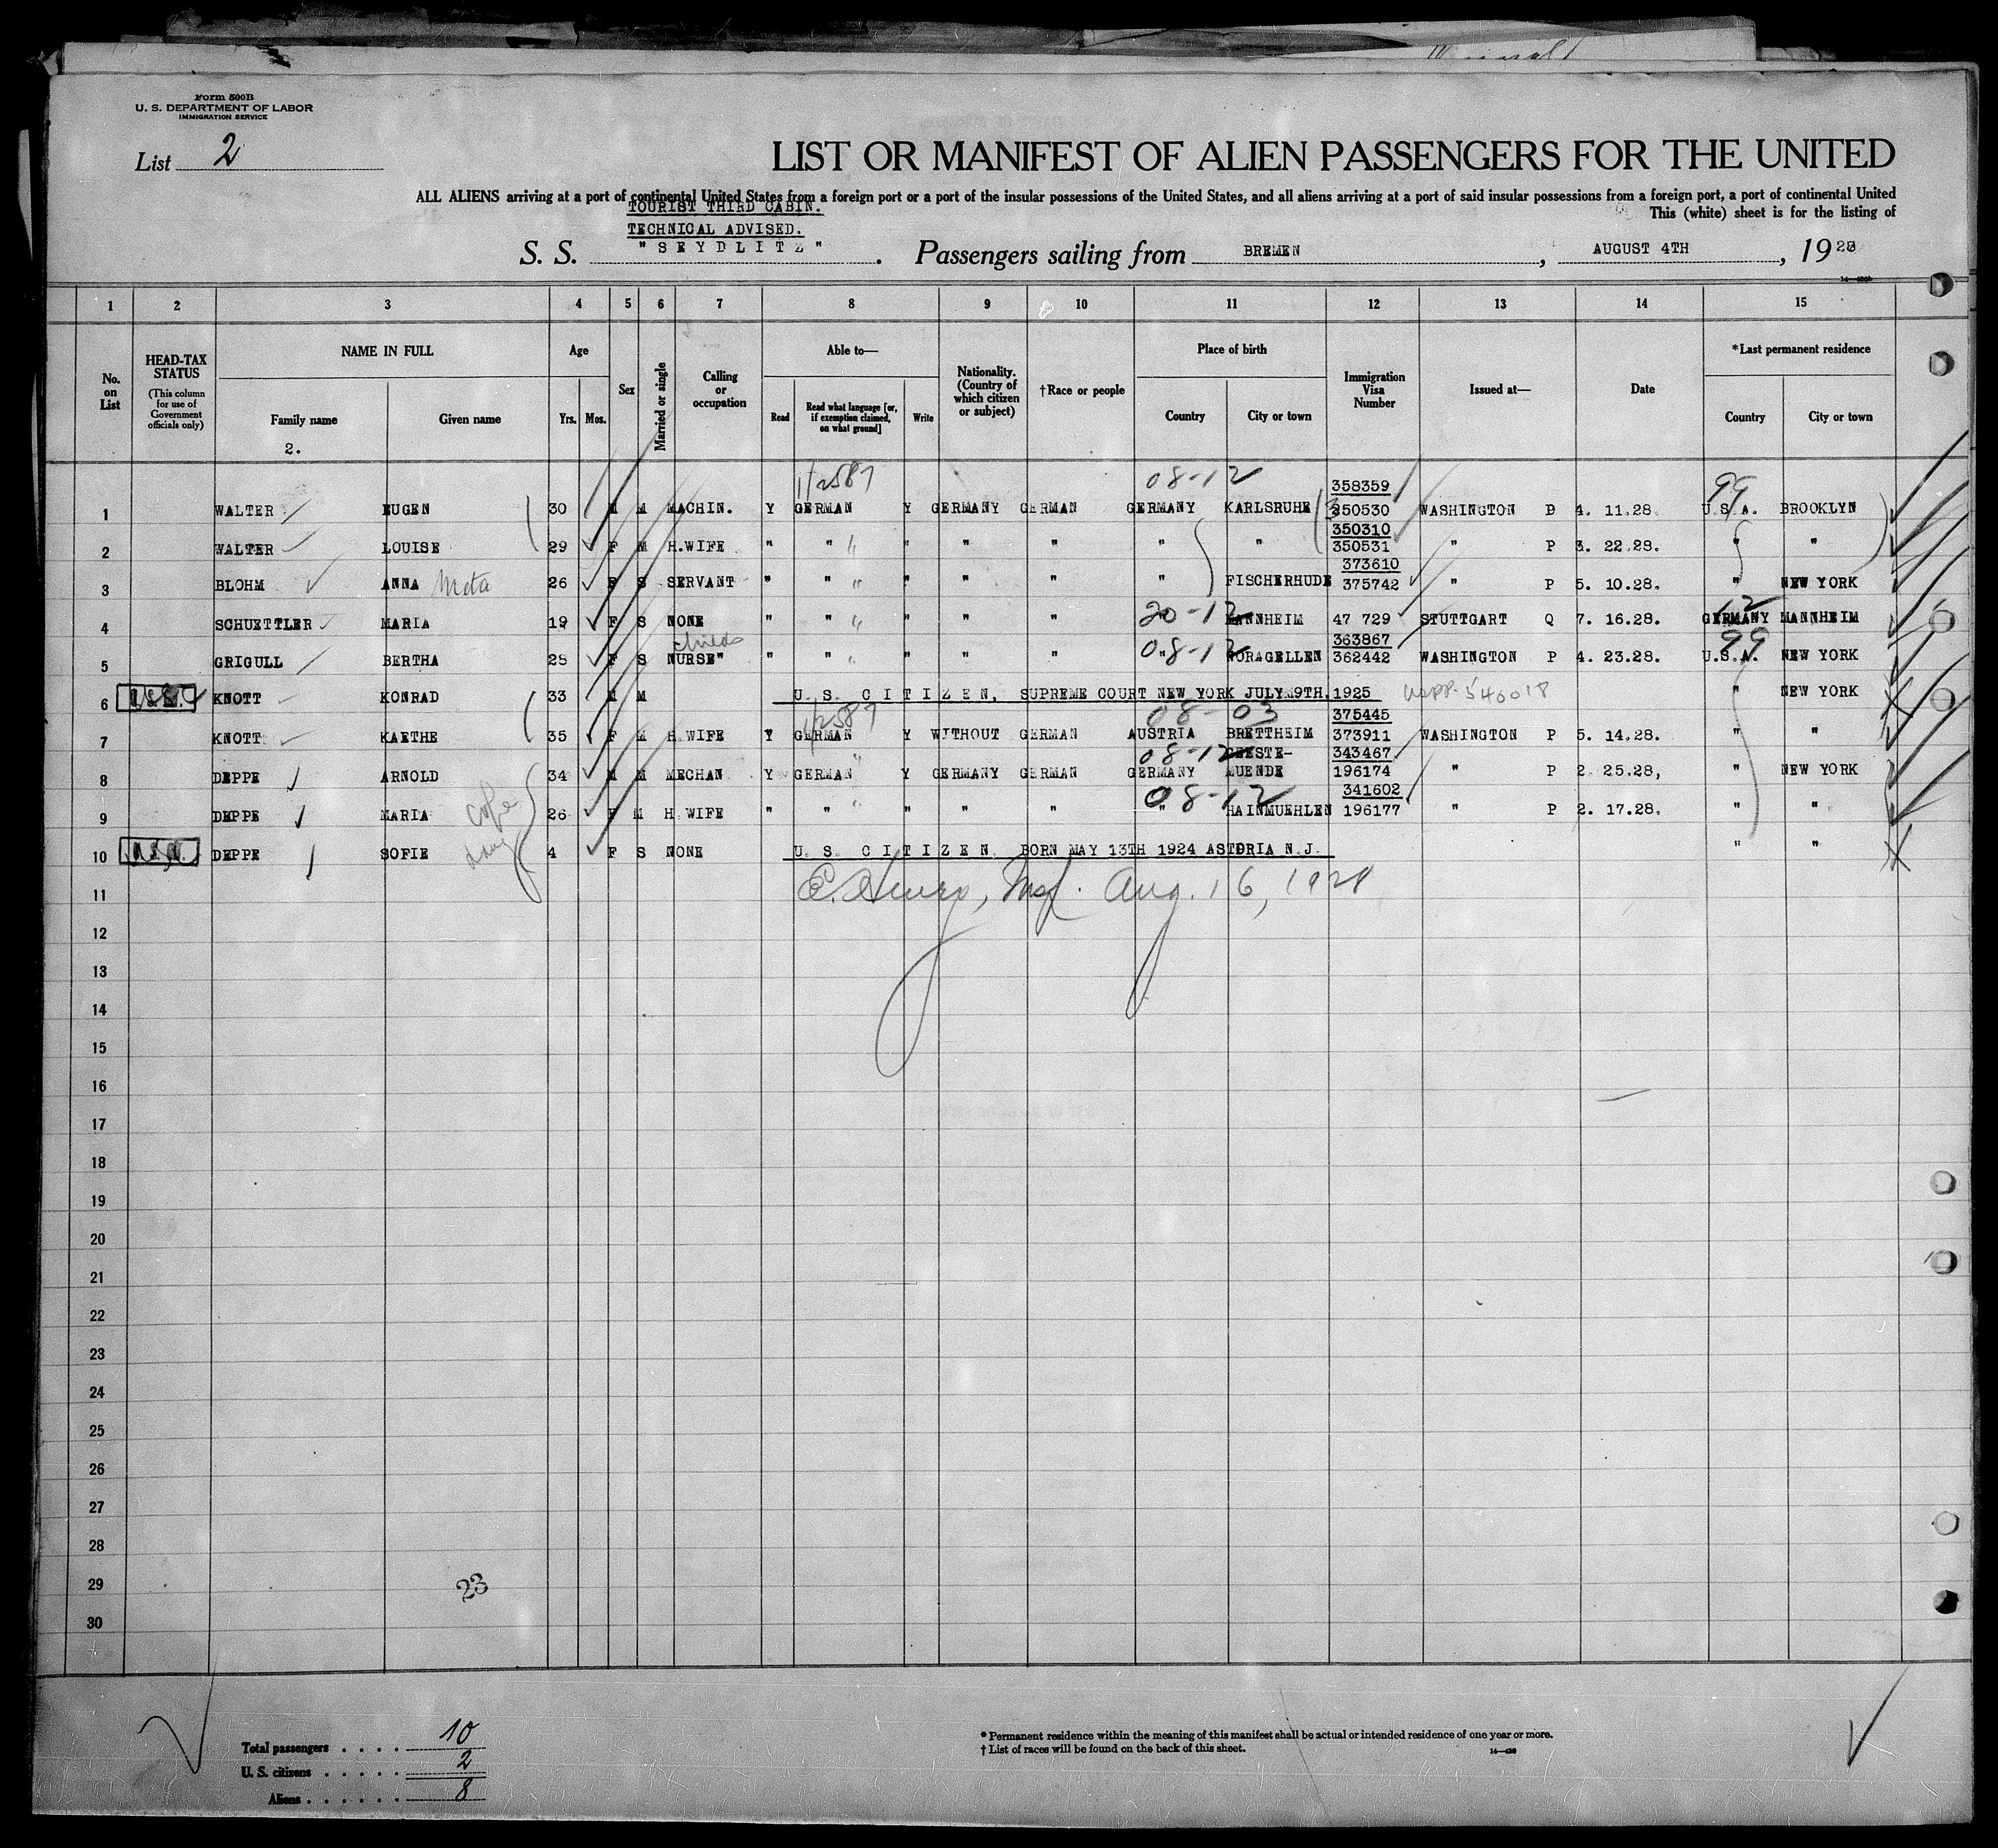 Form 500B
U. S. DEPARTMENT OF LABOR
IMMIGRATION SERVICE
List 2
LIST OR MANIFEST OF ALIEN PASSENGERS FOR THE UNITED
ALL ALIENS arriving at a port of continental United States from a foreign port or a port of the insular possessions of the United States, and all aliens arriving at a port of said insular possessions from a foreign port, a port of continental United
This (white) sheet is for the listing of
TOURIST THIRD CABIN.
TECHNICAL ADVISED.
S. S. "SEYDLITZ". Passengers sailing from BREMEN, AUGUST 4TH, 1928
1 2 3 4 5 6 7 8 9 10 11 12 13 14 15
No. on List
HEAD-TAX STATUS (This column for use of Government officials only)
NAME IN FULL
Family name
Given name
2.
Age
Yrs. Mos.
Sex
Married or single
Calling or occupation
Able to—
Read
Read what language [or, if exemption claimed, on what ground]
Write
Nationality. (Country of which citizen or subject)
†Race or people
Place of birth
Country
City or town
Immigration Visa Number
Issued at—
Date
*Last permanent residence
Country
City or town
1/2587 08-12 358359 99
1 WALTER EUGEN 30 M M MACHIN. Y GERMAN Y GERMANY GERMAN GERMANY KARLSRUHE 350530 WASHINGTON P 4. 11.28. U.S.A. BROOKLYN
350310
2 WALTER LOUISE 29 F M H.WIFE " " " " " " " 350531 " P 3. 22.28. " "
373610
3 BLOHM ANNA Meta 26 F S SERVANT " " " " " " FISCHERHUDE 375742 " P 5. 10.28. " NEW YORK
20-12 12
4 SCHUETTLER MARIA 19 F S NONE " " " " " MANNHEIM 47 729 STUTTGART Q 7. 16.28. GERMANY MANNHEIM
childs 08-12 363867 99
5 GRIGULL BERTHA 28 F S NURSE" " " " " " " NORAGELLEN 362442 WASHINGTON P 4. 23.28. U.S.A. NEW YORK
6 KNOTT KONRAD 33 M M U.S. CITIZEN, SUPREME COURT NEW YORK JULY 9TH.1925 540018 " NEW YORK
1/2587 08-03 375445
7 KNOTT KAETHE 35 F M H.WIFE Y GERMAN Y WITHOUT GERMAN AUSTRIA BRETTHEIM 373911 WASHINGTON P 5. 14.28. " "
08-12 GEESTE- 343467
8 DEPPE ARNOLD 34 M M MECHAN Y GERMAN Y GERMANY GERMAN GERMANY MUENDE 196174 " P 2 25.28, " NEW YORK
08-12 341602
9 DEPPE MARIA 26 F M H WIFE " " " " " " HAINMUEHLEN 196177 " P 2. 17.28. " "
10 DEPPE SOFIE 4 F S NONE U. S. CITIZEN BORN MAY 13TH 1924 ASTORIA N.J. " "
11 Aug. 16, 1928
12
13
14
15
16
17
18
19
20
21
22
23
24
25
26
27
28
29
23
30
Total passengers . . . . 10
U. S. citizens . . . . . 2
Aliens . . . . . . 8
* Permanent residence within the meaning of this manifest shall be actual or intended residence of one year or more.
† List of races will be found on the back of this sheet.